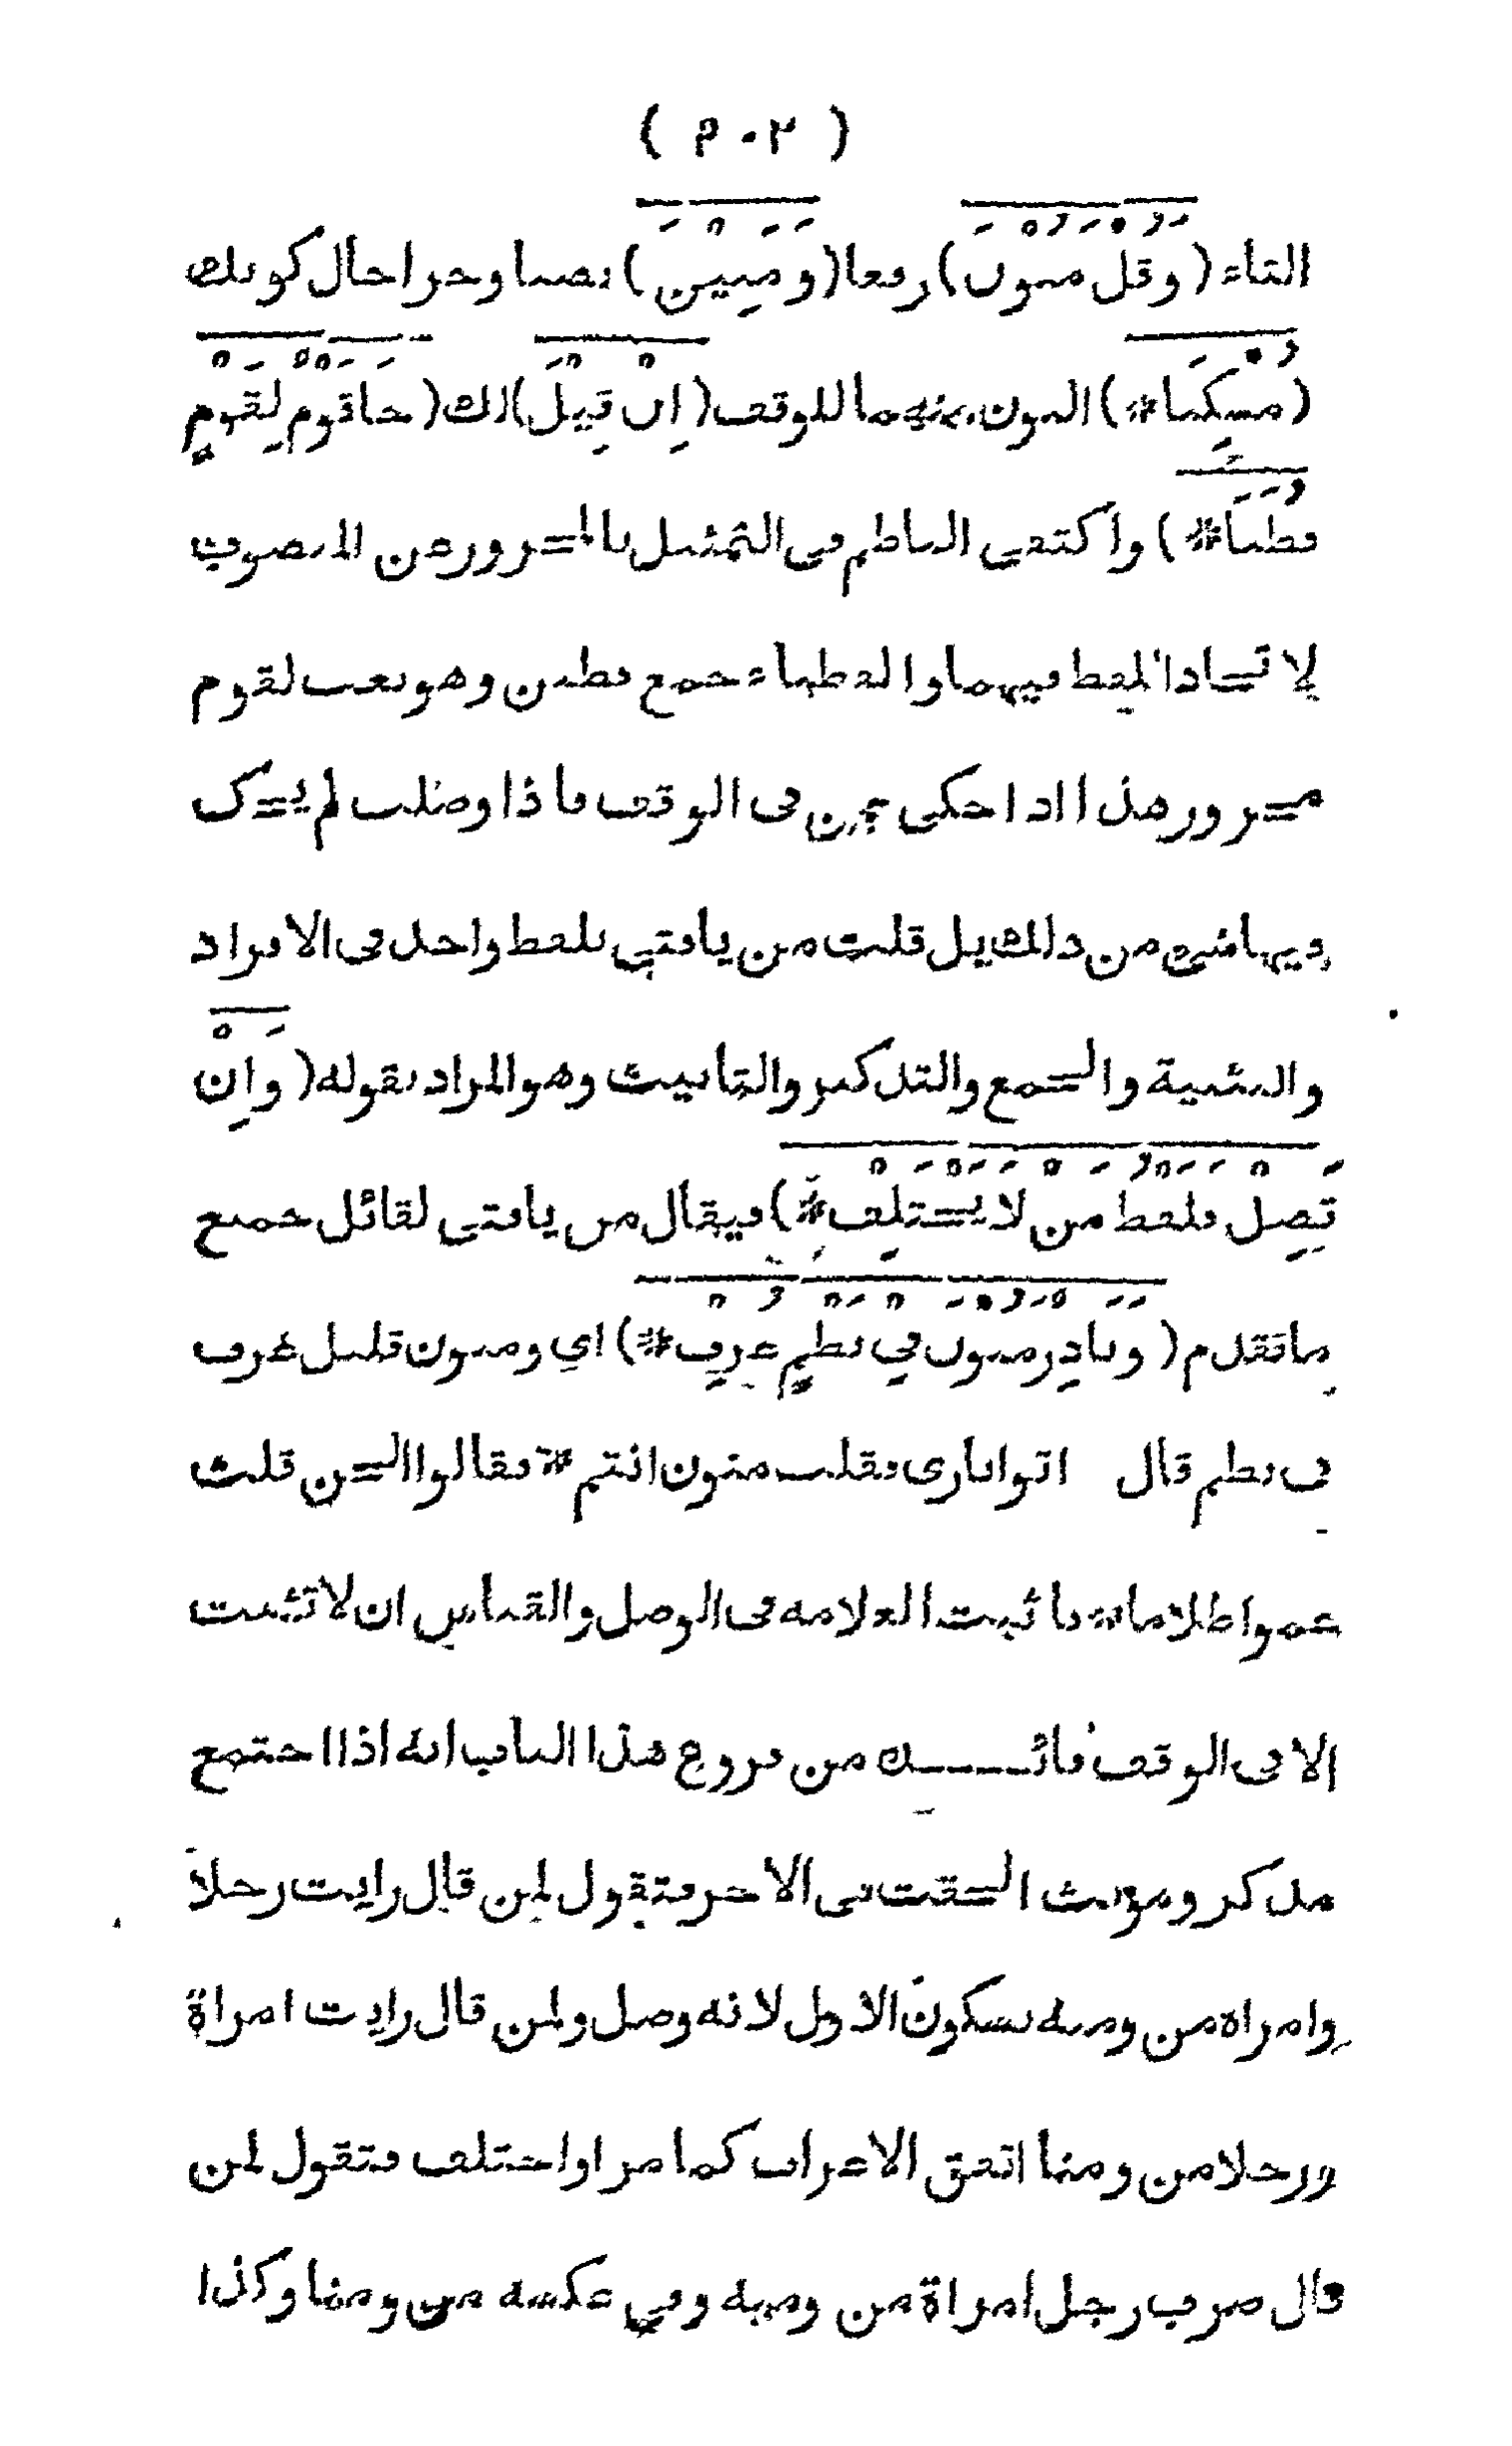 ( ٢٠٩ )
التاء ( وَقُلْ مَنُونَ ) رفعا ( وَمَنِينَ ) نصبا وجرا حال كونك
( مُسْكِنَا # ) النون منهما للوقف ( إِنْ قِيلَ ) لك ( جَا قَوْمٌ لِقَوْمٍ
فُطَنَا # ) واكتفى الناظم فى التمثيل بالمجرور عن المنصوب
لاتحاد اللفظ فيهما والفطناء جمع فطين وهو نعت لقوم
مجرور هذا اذا حكى بمن فى الوقف فاذا وصلت لم يحك
فيها شىء من ذلك بل قلت من يافتى بلفظ واحد فى الافراد
والتثنية والجمع والتذكير والتانيث وهو المراد بقوله ( وَإِنْ
تَصِلْ فَلَفْظُ مَنْ لَا يَخْتَلِفْ # ) فيقال من يافتى لقائل جميع
ماتقدم ( وَنَادِرٌ مَنُونَ فِي نَظْمٍ عُرِفْ # ) اي ومنون قليل عرف
فى نظم قال اتوا نارى فقلت منون انتم # فقالوا الجن قلت
عموا ظلاما # فاثبت العلامه فى الوصل والقياس ان لا تثبت
الا فى الوقف فائـــــدة من فروع هذا الباب انه اذا اجتمع
مذكر ومؤنث الحقت فى الآخر فتقول لمن قال رايت رجلا
وامراة من ومنه بسكون الاول لانه وصل ولمن قال رايت امراة
ورجلا من ومنا اتفق الاعراب كما مر او اختلف فتقول لمن
قال ضرب رجل امراة من ومنه وفى عكسه من ومنا وكذا